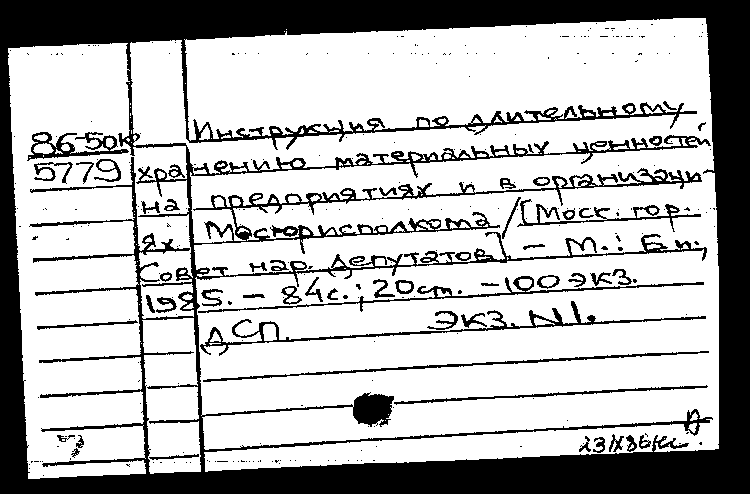 86-50к
5779
Инструкция по длительному
хранению материальных ценностей
на предприятиях и в организаци-
ях Мосгорисполкома / [Моск. гор.
Совет нар. депутатов]. - М.: Б.и.,
1985. - 84с.; 20см. - 100 экз.
ДСП. экз. N1.